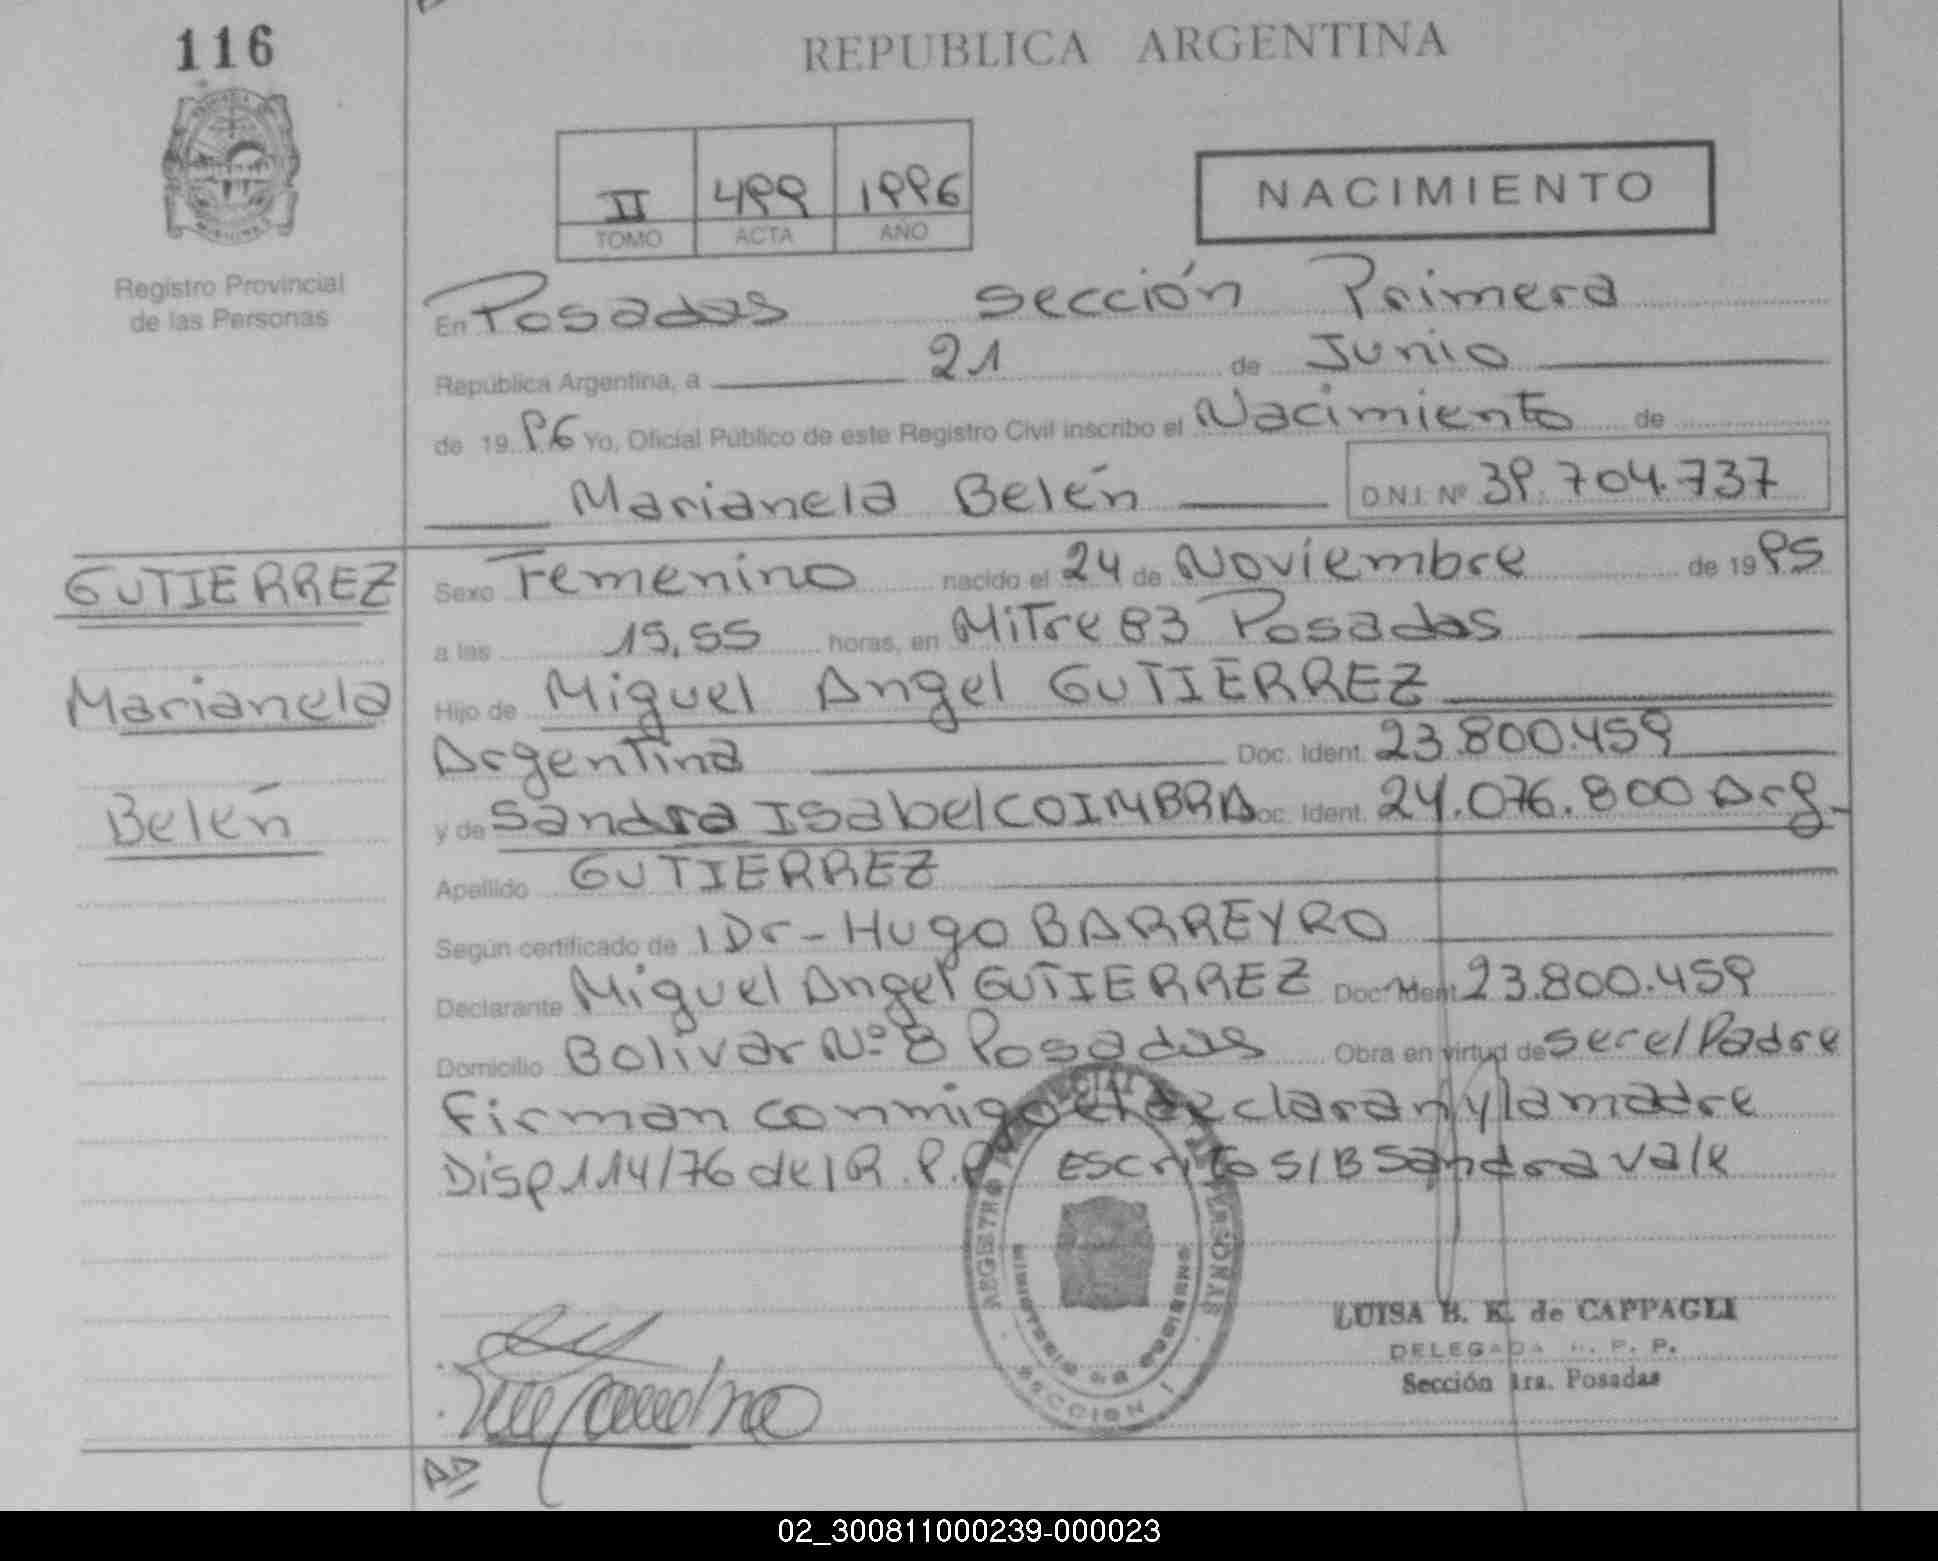 116
REPUBLICA ARGENTINA
II 499 1996
TOMO ACTA AÑO
NACIMIENTO
Registro Provincial
de las Personas
En Posadas sección Primera
República Argentina, a 21 de Junio
de 19 96 Yo, Oficial Público de este Registro Civil inscribo el Nacimiento de
Marianela Belén D.N.I. Nº 39.704.737
GUTIERREZ
Marianela
Belén
Sexo Femenino nacido el 24 de Noviembre de 19 95
a las 15,55 horas, en Mitre 83 Posadas
Hijo de Miguel Angel GUTIERREZ
Argentina Doc. Ident. 23.800.459
y de Sandra Isabel COIMBRA Doc. Ident. 24.076.800 Arg.
Apellido GUTIERREZ
Según certificado de Dr- Hugo BARREYRO
Declarante Miguel Angel GUTIERREZ Doc. Ident. 23.800.459
Domicilio Bolivar Nº 8 Posadas Obra en virtud de ser el Padre
Firman conmigo el declaran y la madre
Disp 114/76 del R.P.P Escrito S/B Sandra vale
REGISTRO PROVINCIAL DE LAS PERSONAS
MINISTERIO DE GOBIERNO
SECCION 1
LUISA B. K. de CAPPAGLI
DELEGADA R. P. P.
Sección 1ra. Posadas
AD
02_300811000239-000023